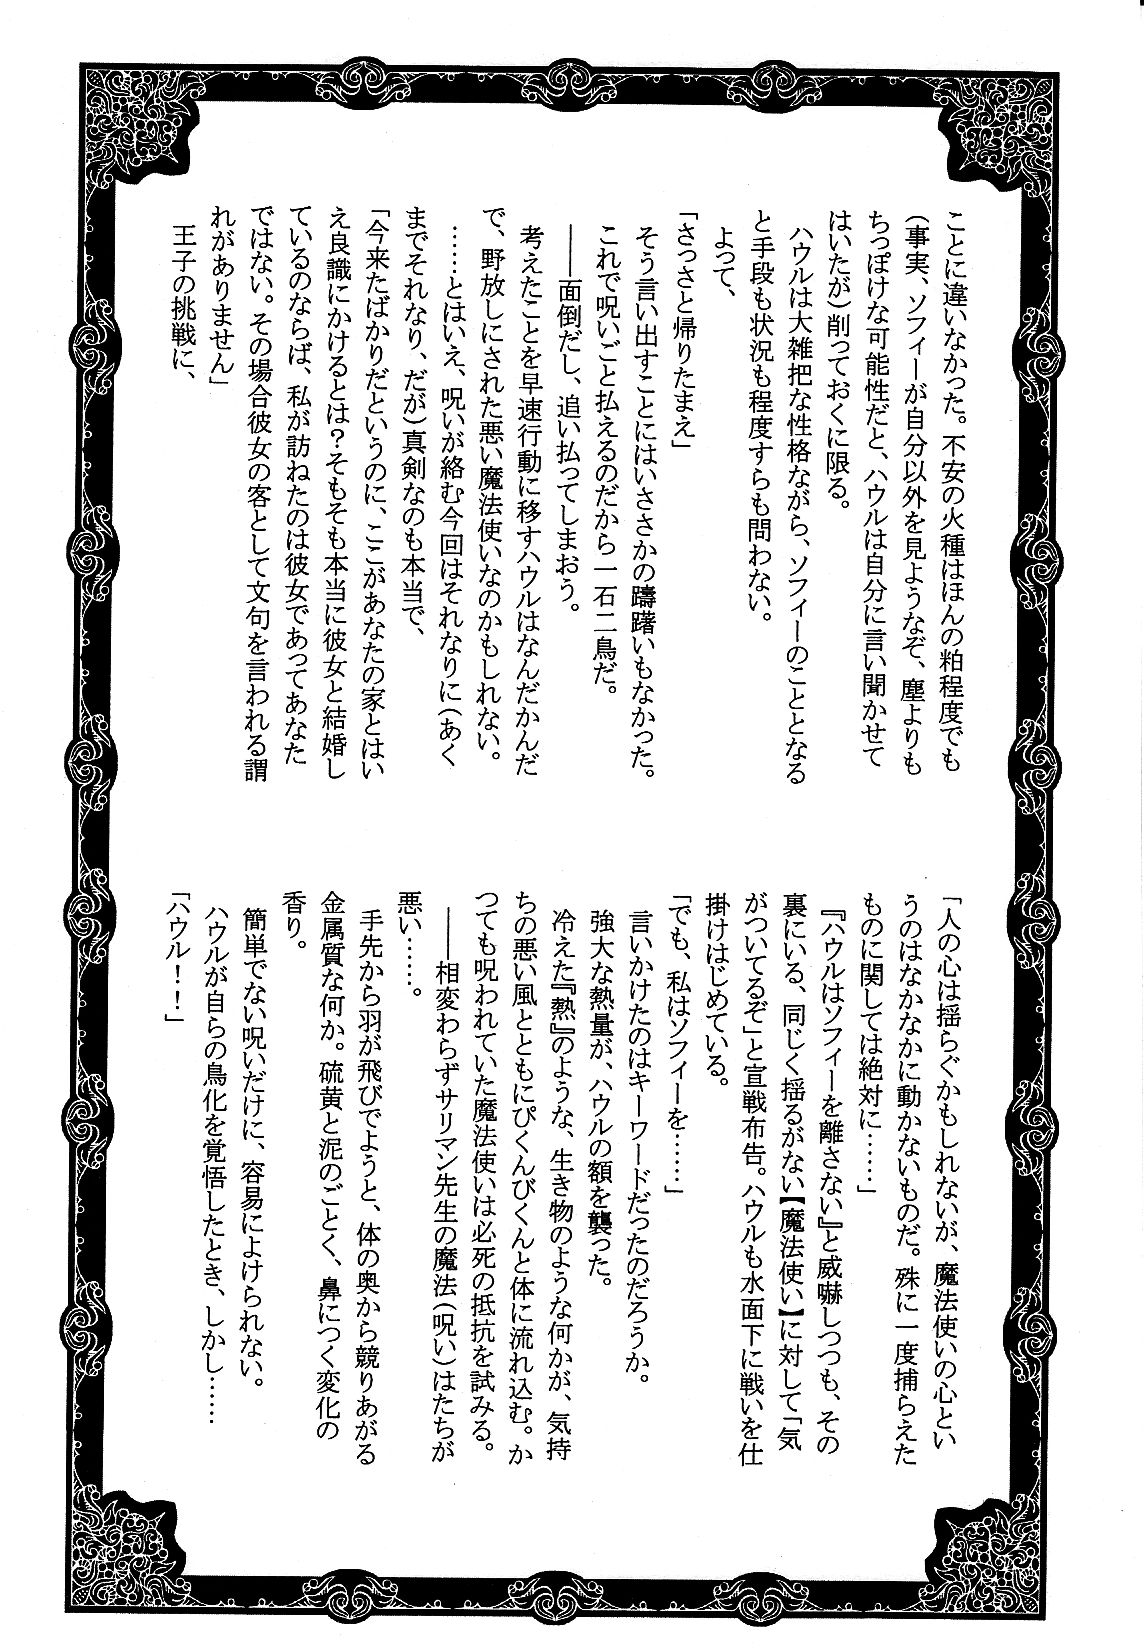 ことに違いなかった。不安の火種はほんの粕程度でも
(事実、ソフィーが自分以外を見ようなぞ、塵よりも
ちっぽけな可能性だと、ハウルは自分に言い聞かせて
はいたが)削っておくに限る。
ハウルは大雑把な性格ながら、ソフィーのこととなる
と手段も状況も程度すらも問わない。
よって、
「さっさと帰りたまえ」
そう言い出すことにはいささかの躊躇いもなかった。
これで呪いごと払えるのだから一石二鳥だ。
――面倒だし、追い払ってしまおう。
考えたことを早速行動に移すハウルはなんだかんだ
で、野放しにされた悪い魔法使いなのかもしれない。
……とはいえ、呪いが絡む今回はそれなりに(あく
までそれなり、だが)真剣なのも本当で、
「今来たばかりだというのに、ここがあなたの家とはい
え良識にかけるとは？そもそも本当に彼女と結婚し
ているのならば、私が訪ねたのは彼女であってあなた
ではない。その場合彼女の客として文句を言われる謂
れがありません」
王子の挑戦に、
「人の心は揺らぐかもしれないが、魔法使いの心とい
うのはなかなかに動かないものだ。殊に一度捕らえた
ものに関しては絶対に……」
『ハウルはソフィーを離さない』と威嚇しつつも、その
裏にいる、同じく揺るがない【魔法使い】に対して「気
がついてるぞ」と宣戦布告。ハウルも水面下に戦いを仕
掛けはじめている。
「でも、私はソフィーを……」
言いかけたのはキーワードだったのだろうか。
強大な熱量が、ハウルの額を襲った。
冷えた『熱』のような、生き物のような何かが、気持
ちの悪い風とともにぴくんびくんと体に流れ込む。か
つても呪われていた魔法使いは必死の抵抗を試みる。
――相変わらずサリマン先生の魔法(呪い)はたちが
悪い……。
手先から羽が飛びでようと、体の奥から競りあがる
金属質な何か。硫黄と泥のごとく、鼻につく変化の
香り。
簡単でない呪いだけに、容易によけられない。
ハウルが自らの鳥化を覚悟したとき、しかし……
「ハウル！！」